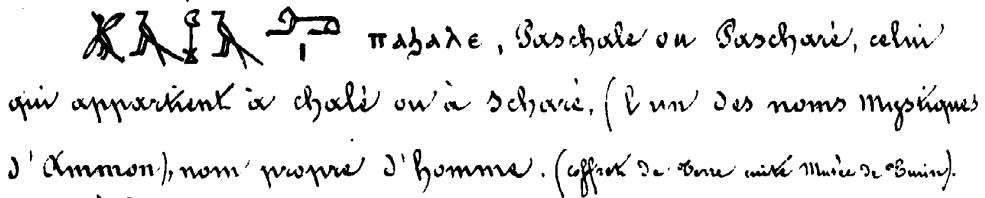 ⲡⲁϧⲁⲗⲉ, Paschale ou Pascharé, celui
qui appartient à chalé ou à scharé, (l'un des noms mystiques
d'Ammon), nom propre d'homme. (coffret de terre cuite Musée de Turin).